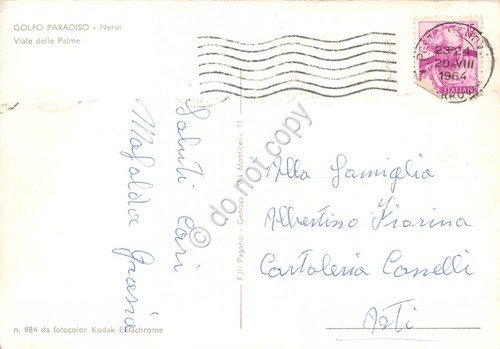 GOLFO PARADISO - Nervi
Viale delle Palme
23-24
20.VIII
1964
ITALIANE
Saluti Cari
Mafalda Grasia
do not copy
F.lli Pagano - Genova, Via Monticelli, 11
Alla Famiglia
Albertino Fiorina
Cartoleria Canelli
Asti
n. 884 da fotocolor Kodak Ektachrome